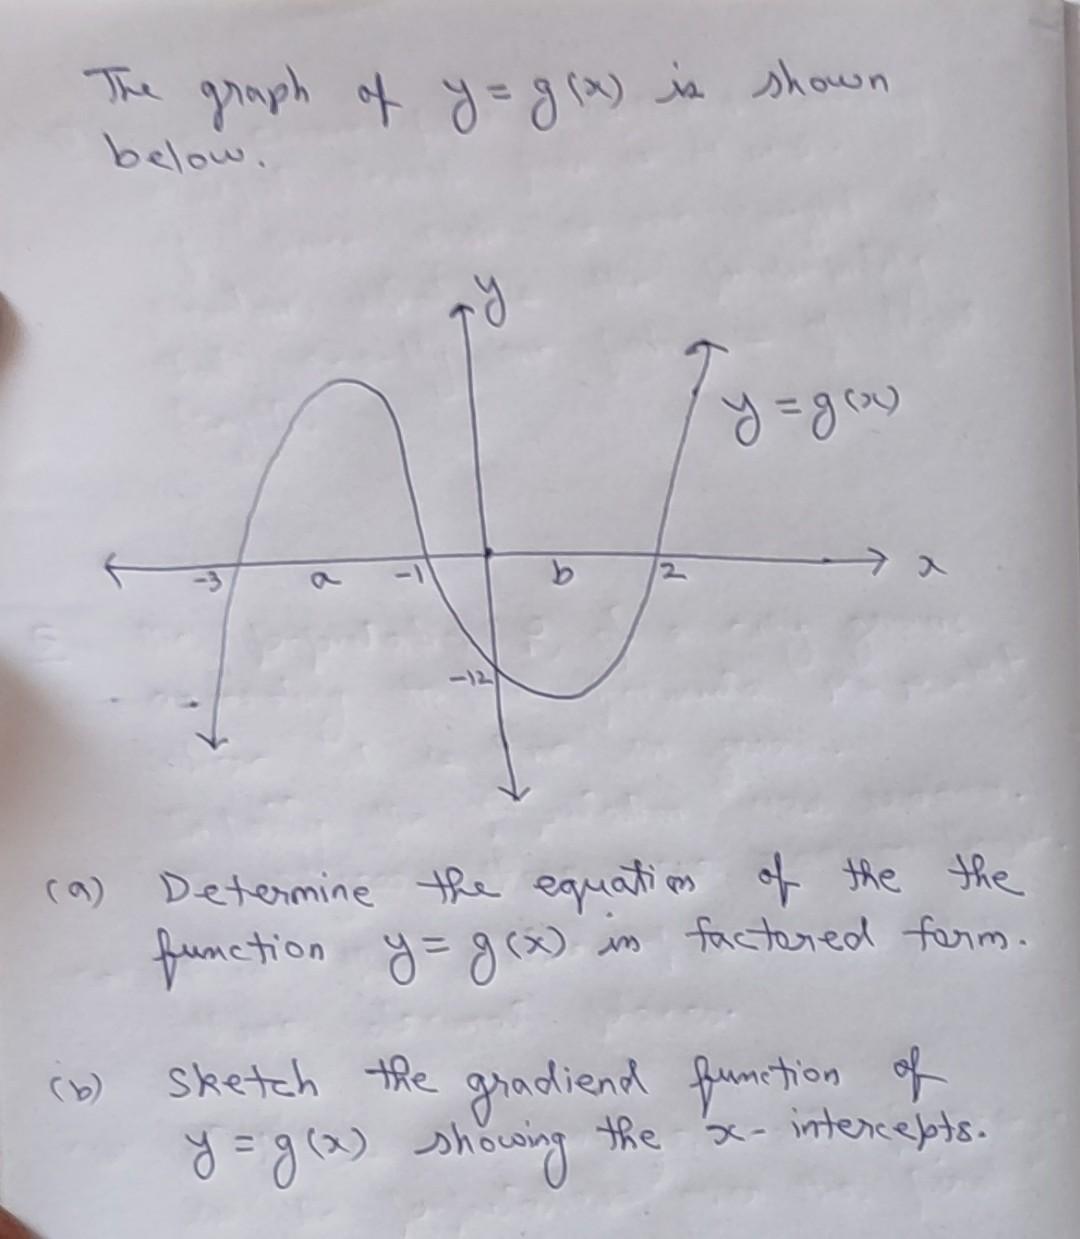 The graph of y = g(x) is shown
below.
y
y = g(x)
-3 a -1 b 2 x
-12
(a) Determine the equation of the the
function y = g(x) in factored form.
(b) Sketch the gradiend function of
y = g(x) showing the x- intercepts.